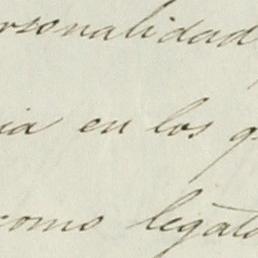 rsonalidad
ia en los q
como legato